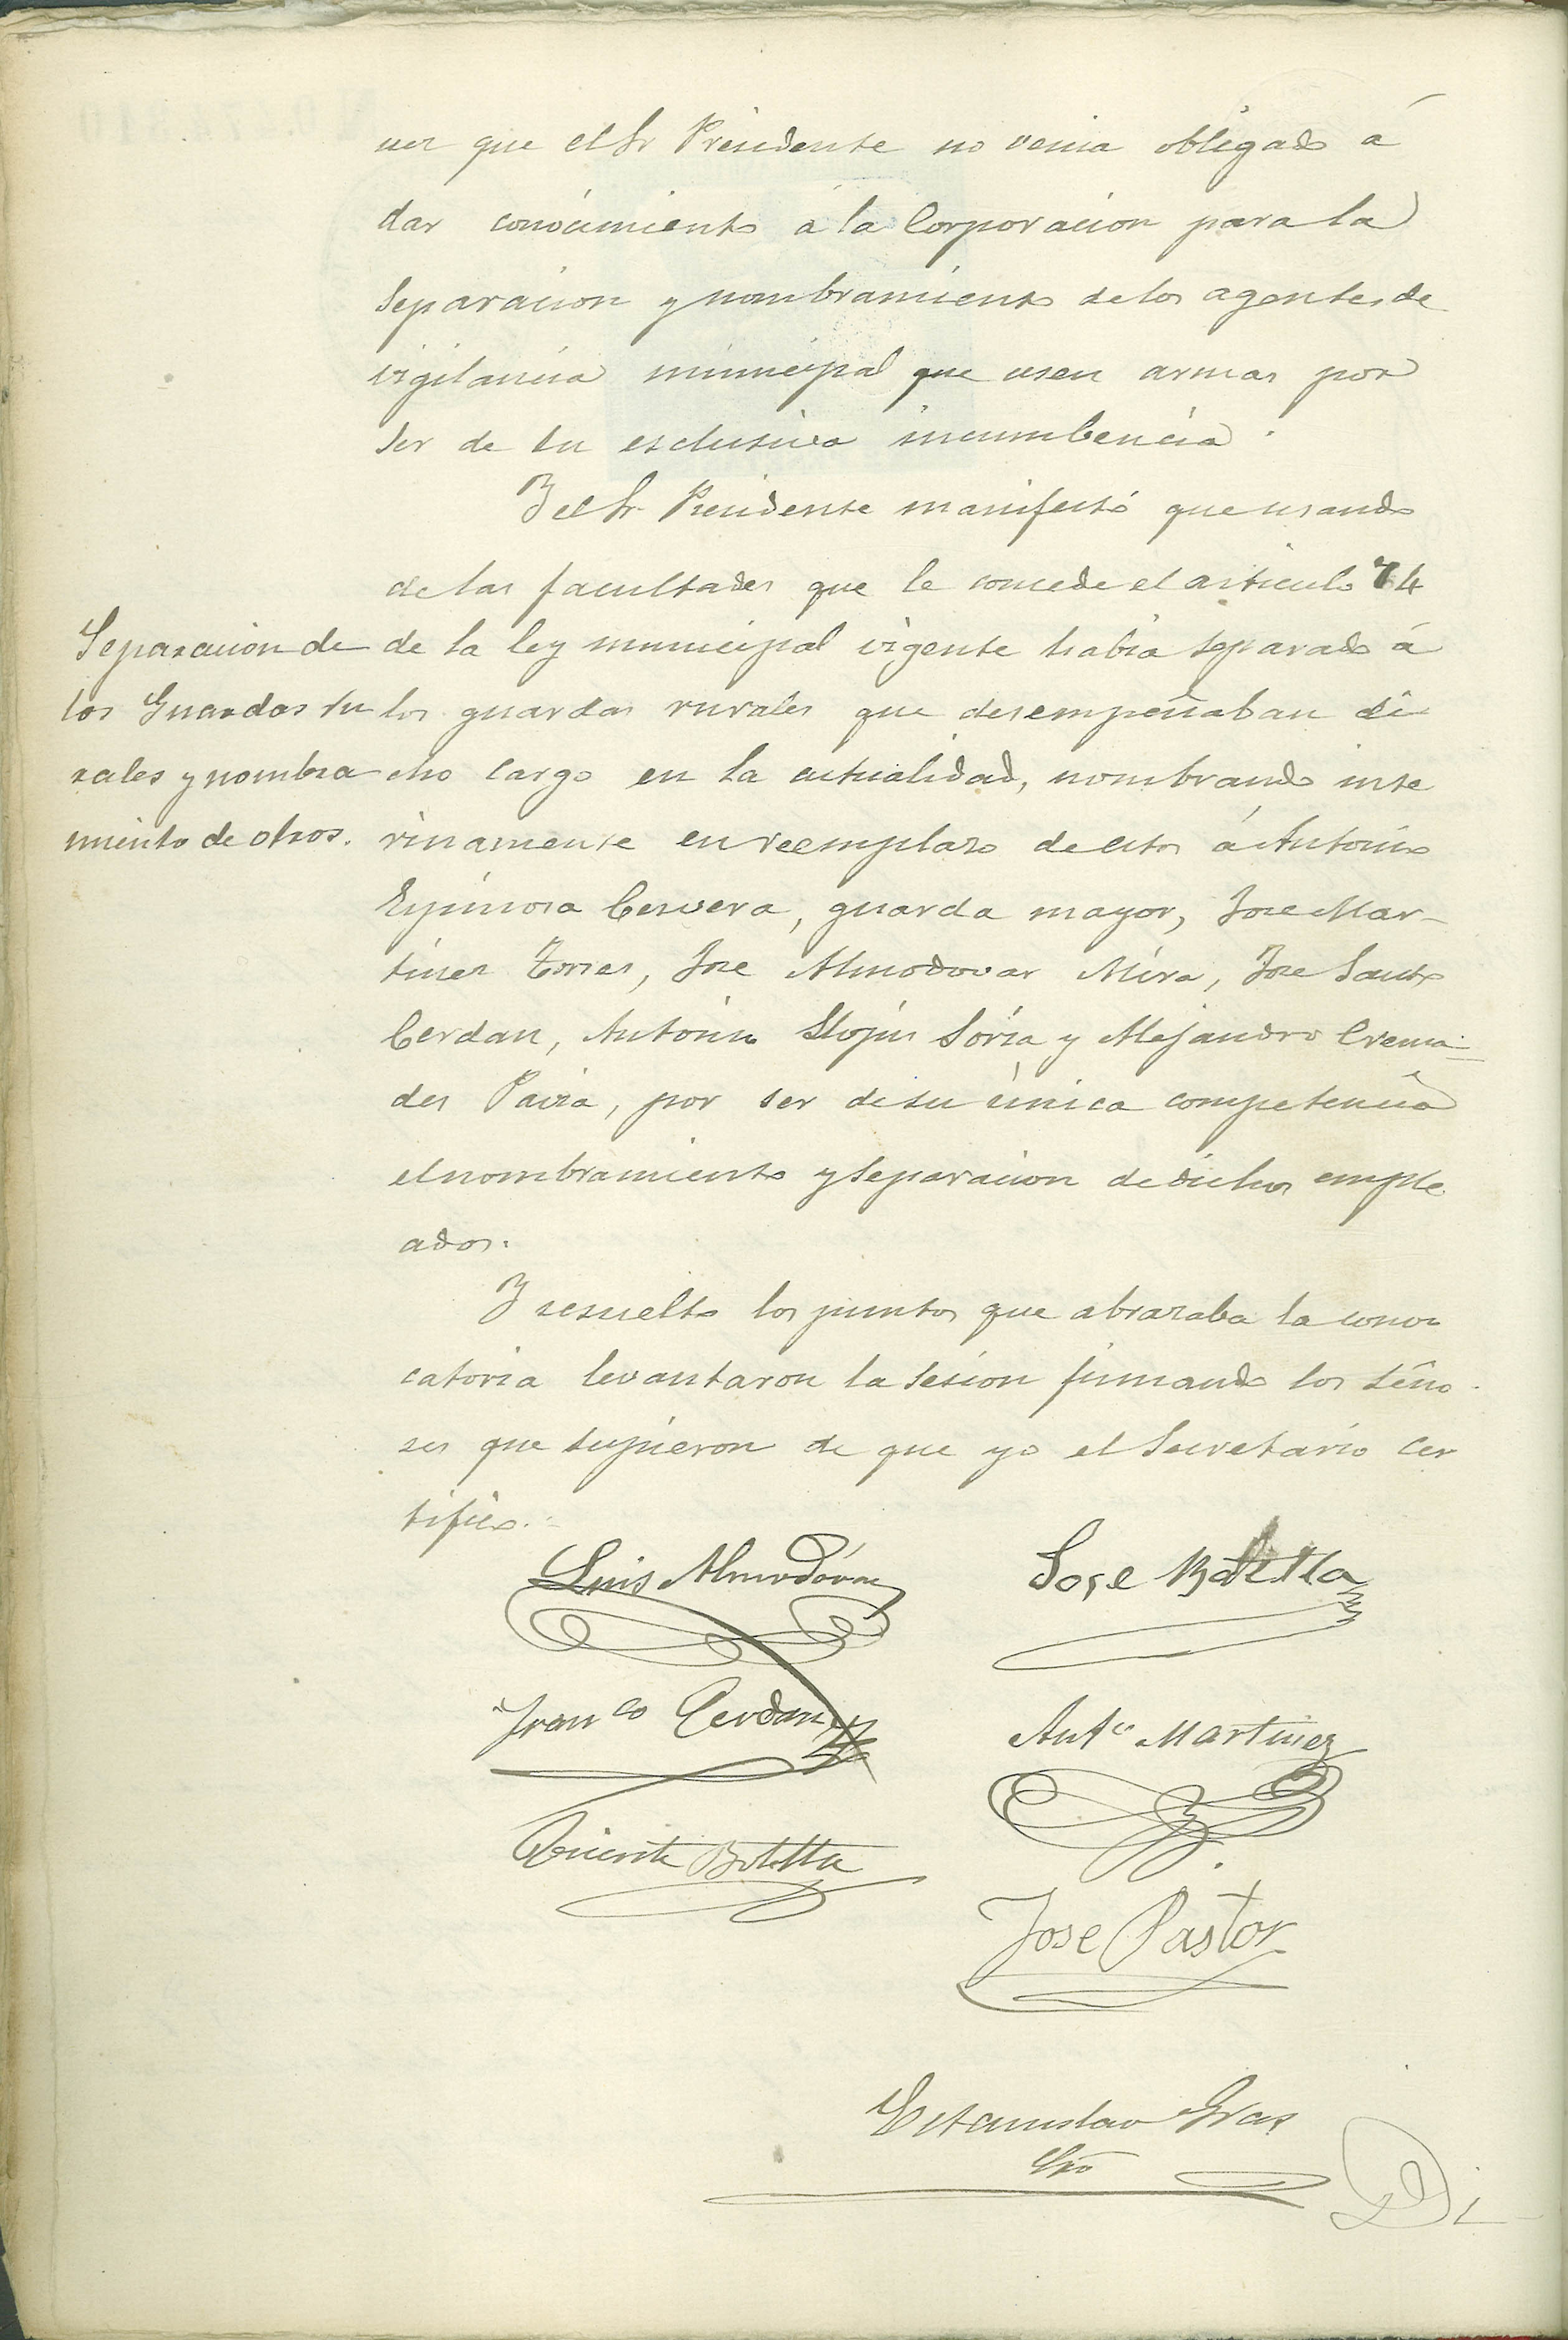 ner que el Sr Presidente no venia obligado á
dar conocimiento á la Corporacion para la
separacion y nombramiento de los agentes de
vigilancia municipal que usen armas por
ser de su esclusiva incumbencia.
Y el Sr. Presidente manifestó que usando
de las facultades que le concede el articulo 74
de la ley municipal vigente habia separado á
los guardas rurales que desempeñaban di
cho cargo en la actualidad, nombrando inte
rinamente en reemplazo de estos á Antonio
Espinosa Cervera, guarda mayor, Jose Mar-
tinez Torres, Jose Almodovar Mira, Jose Santo
Cerdan, Antonio Soria y Alejandro Crema-
des Pavia, por ser de su única competencia
el nombramiento y separacion de dichos emple
ados.
Y resuelto los puntos que abrazaba la convo
catoria levantaron la sesion firmando los seño
res que supieron de que yo el Secretario cer
tifico.
Separacion de
los Guardas ru
rales y nombra
miento de otros.
Luis Almodóvar
Jose Botella
Franco Cerdan
Anto Martinez
Vicente Botella
Jose Pastor
Estanislao Gras
Srio
Di